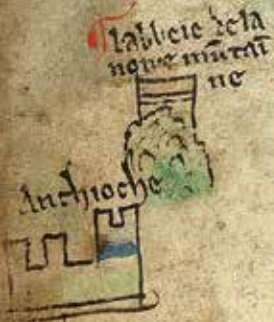 labbeie de la
noire mūtai
ne
Anthioche